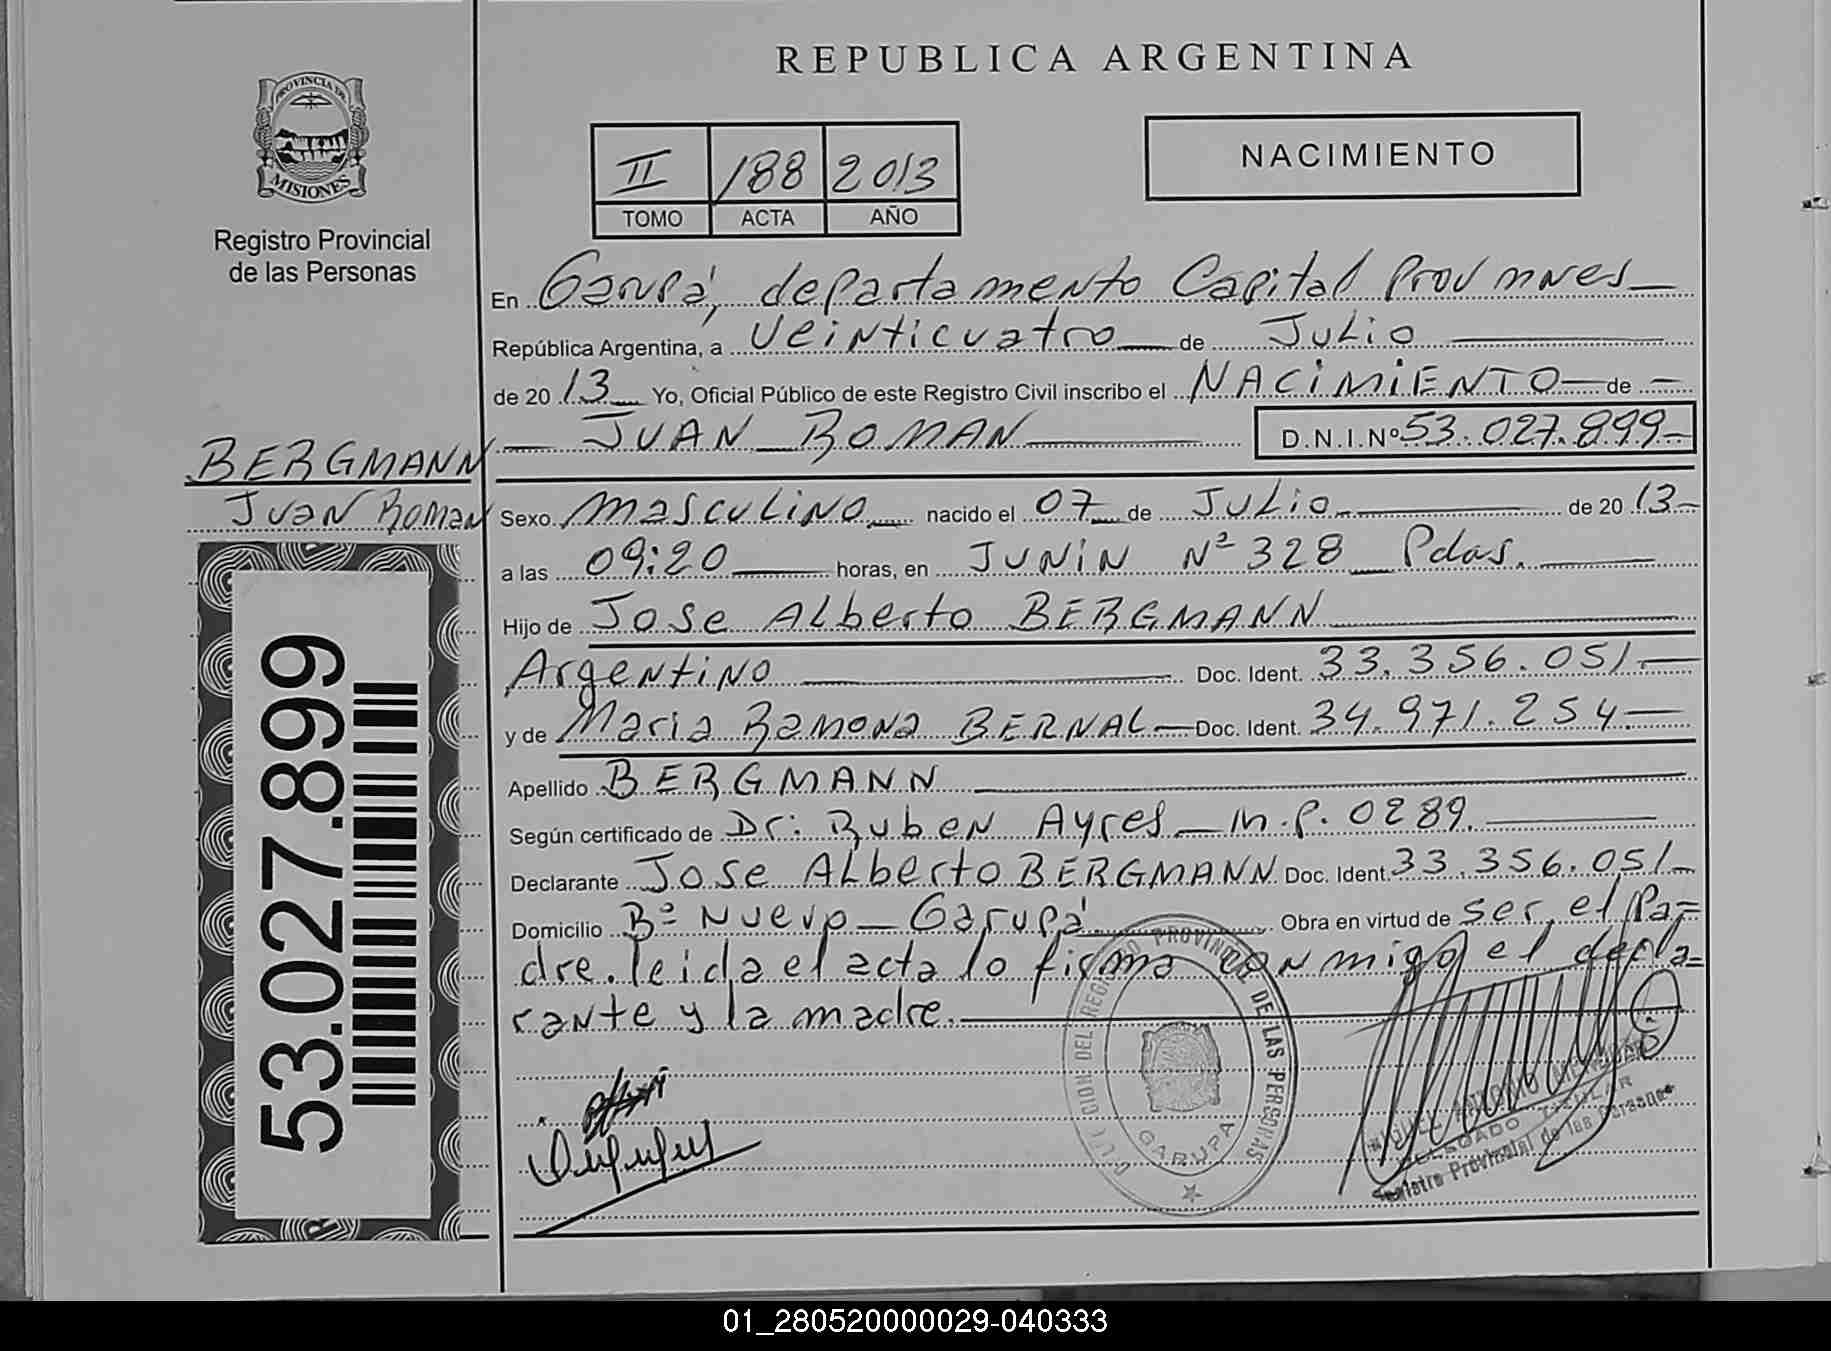 REPUBLICA ARGENTINA
PROVINCIA DE
MISIONES
Registro Provincial
de las Personas
II 188 2013
TOMO ACTA AÑO
NACIMIENTO
En Garupá, departamento Capital Prov mnes
República Argentina, a veinticuatro de Julio
de 2013 Yo, Oficial Público de este Registro Civil inscribo el NACIMIENTO de
JUAN ROMAN D.N.I.Nº 53.027.899
BERGMANN
Juan Roman
Sexo masculino nacido el 07 de Julio de 2013
a las 09:20 horas, en JUNIN Nº 328 Pdas.
Hijo de Jose Alberto BERGMANN
Argentino Doc. Ident. 33.356.051
y de Maria Ramona BERNAL Doc. Ident. 34.971.254
Apellido BERGMANN
Según certificado de Dr: Ruben Ayres M.P. 0289.
Declarante Jose Alberto BERGMANN Doc. Ident. 33.356.051
Domicilio Bº Nuevo - Garupá Obra en virtud de ser el Pa=
dre. leida el acta lo firma con migo el decla=
rante y la madre.
53.027.899
DEL REGISTRO PROVINCIAL DE LAS PERSONAS
GARUPA
Registro Provincial de las Personas
01_280520000029-040333